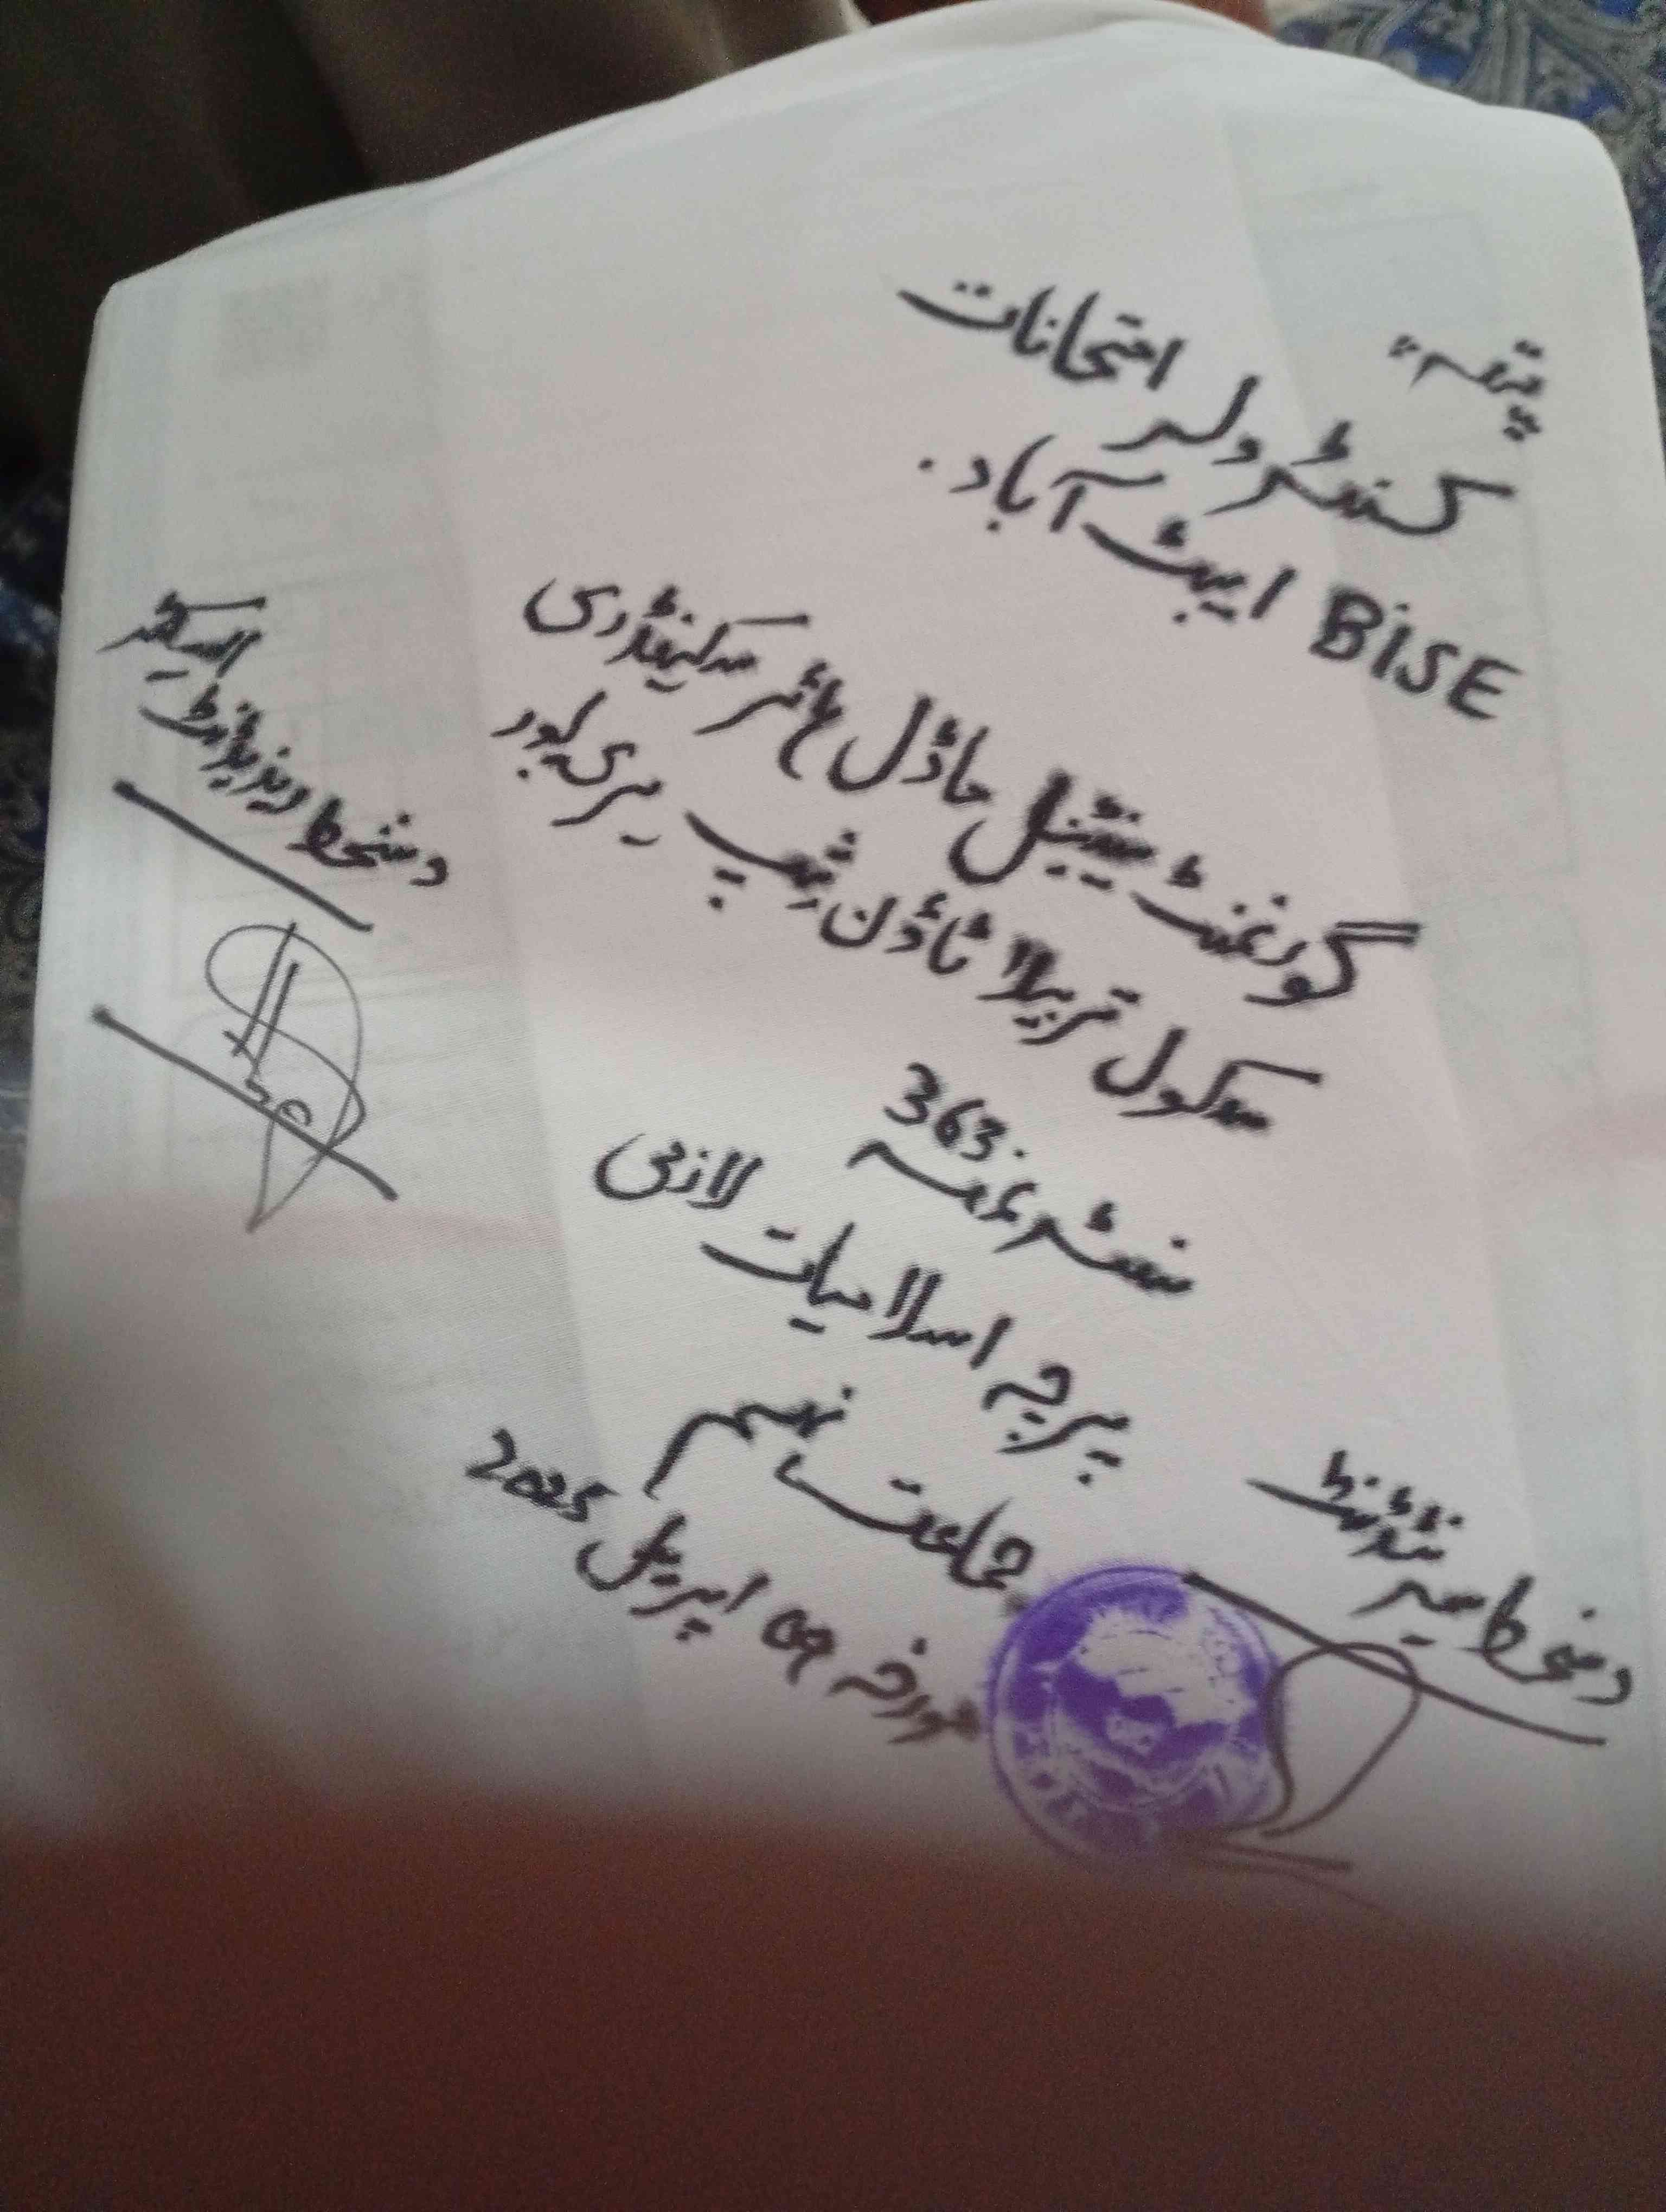 پتہ:
کنٹرولر امتحانات
BiSE ایبٹ آباد.
گورنمنٹ سنٹینیل ماڈل ہائر سکینڈری
سکول تربیلا ٹاؤن شپ ہری پور
سنٹر نمبر 363
پرچہ اسلامیات لازمی
جماعت نہم
مورخہ اپریل 2025
دستخط سپرنٹنڈنٹ
دستخط انسپکٹر